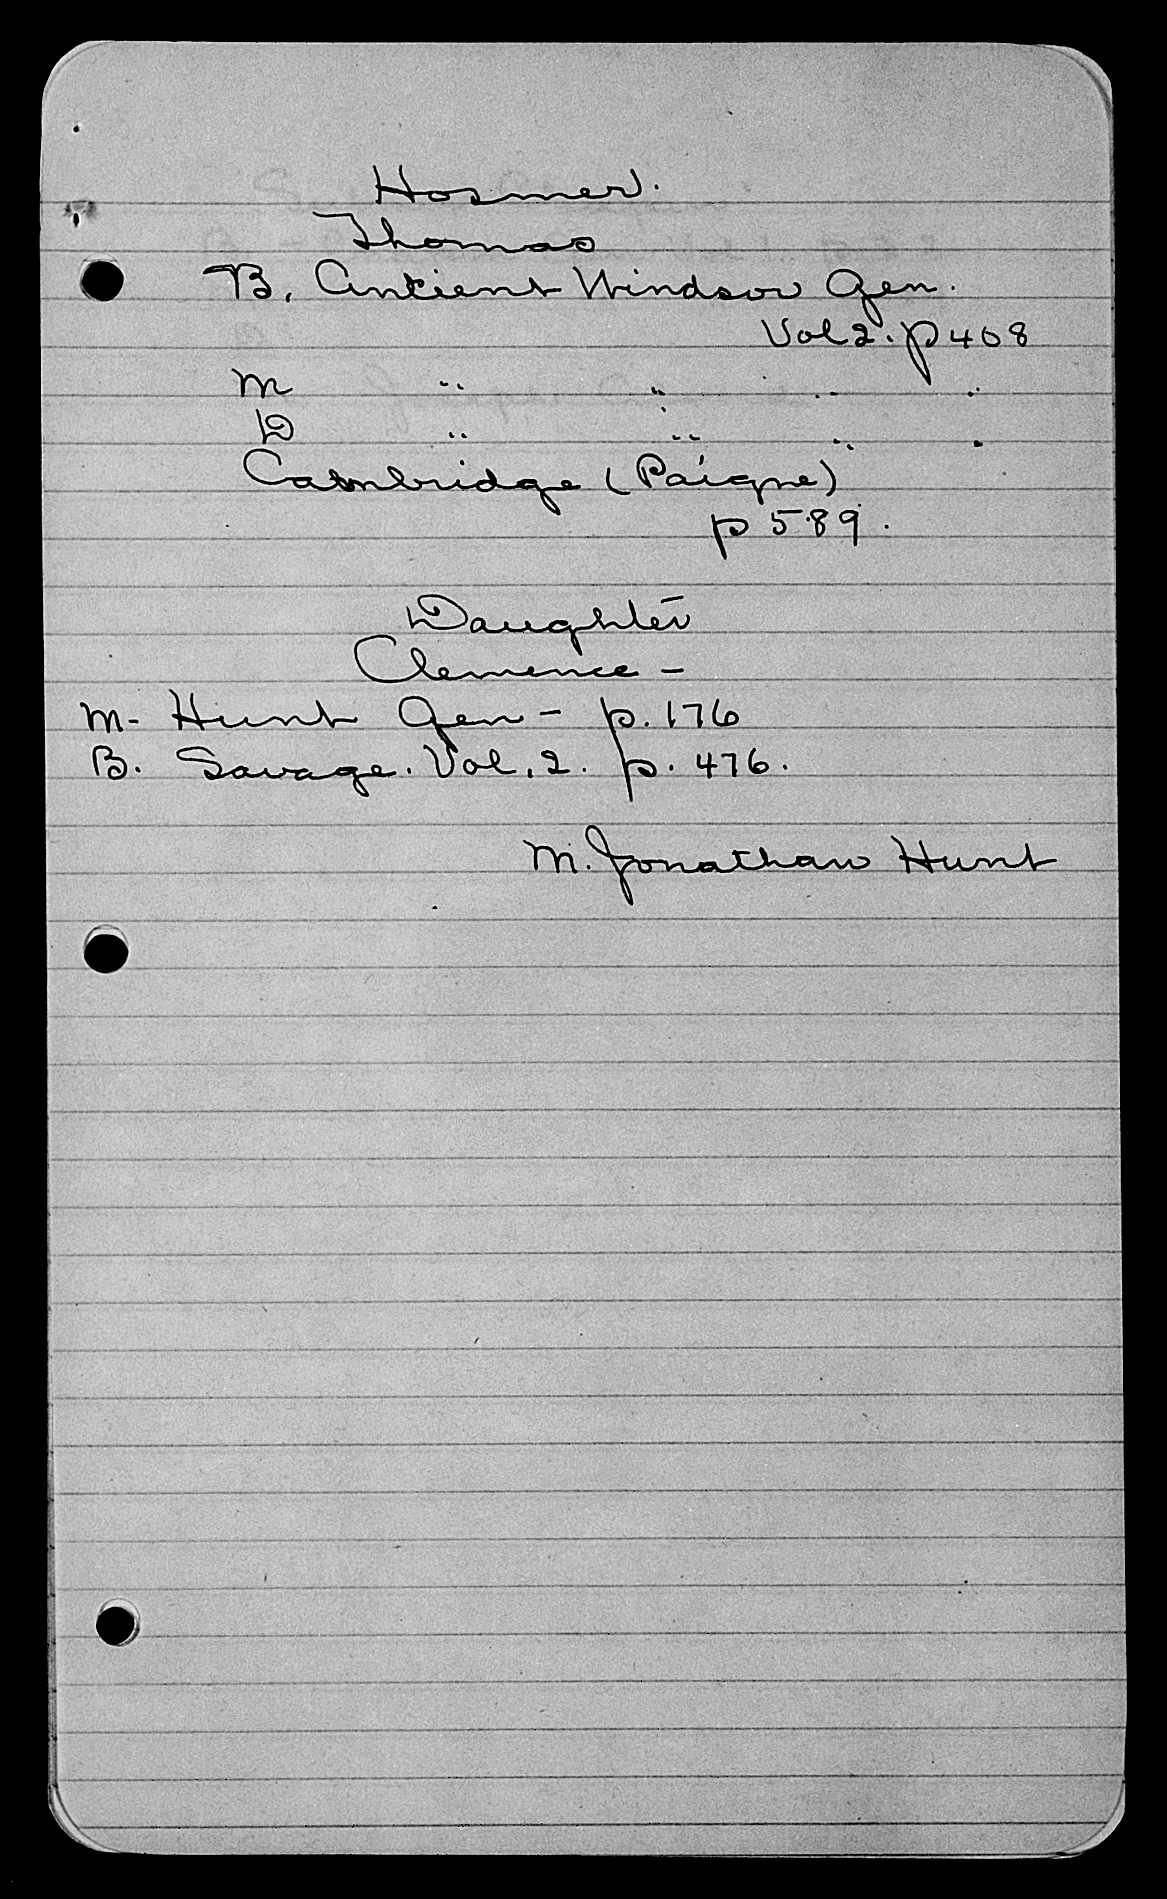 Hosmer.
Thomas
B. Antient Windsor Gen.
Vol 2. p 408
M " " " "
D " " " "
Cambridge (Paigne)
p 589.
Daughter
Clemence -
M- Hunt Gen - p. 176
B. Savage. Vol. 2. p. 476.
M. Jonathan Hunt